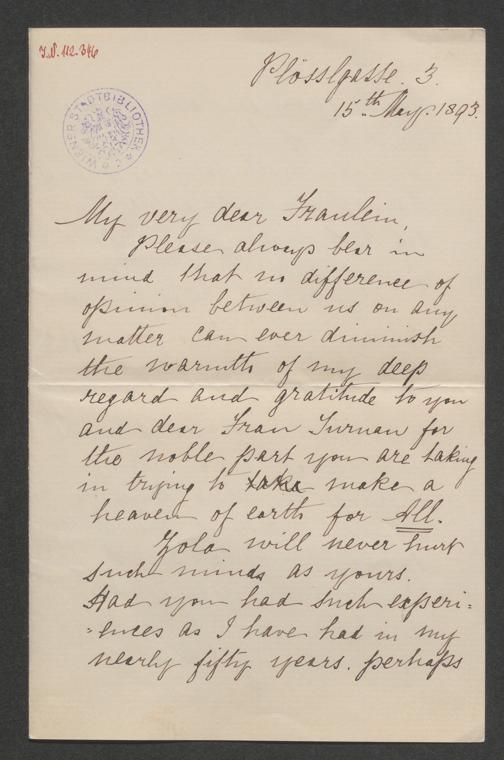 I.N. 112.346
WIENER STADTBIBLIOTHEK
Plösslgasse. 3.
15th May. 1893.
My very dear Fraulein,
Please always bear in
mind that no difference of
opinion between us on any
matter can ever diminish
the warmth of my deep
regard and gratitude to you
and dear Frau Turnau for
the noble part you are taking
in trying to take make a
heaven of earth for All.
Zola will never hurt
such minds as yours.
Had you had such experi=
=ences as I have had in my
nearly fifty years. perhaps